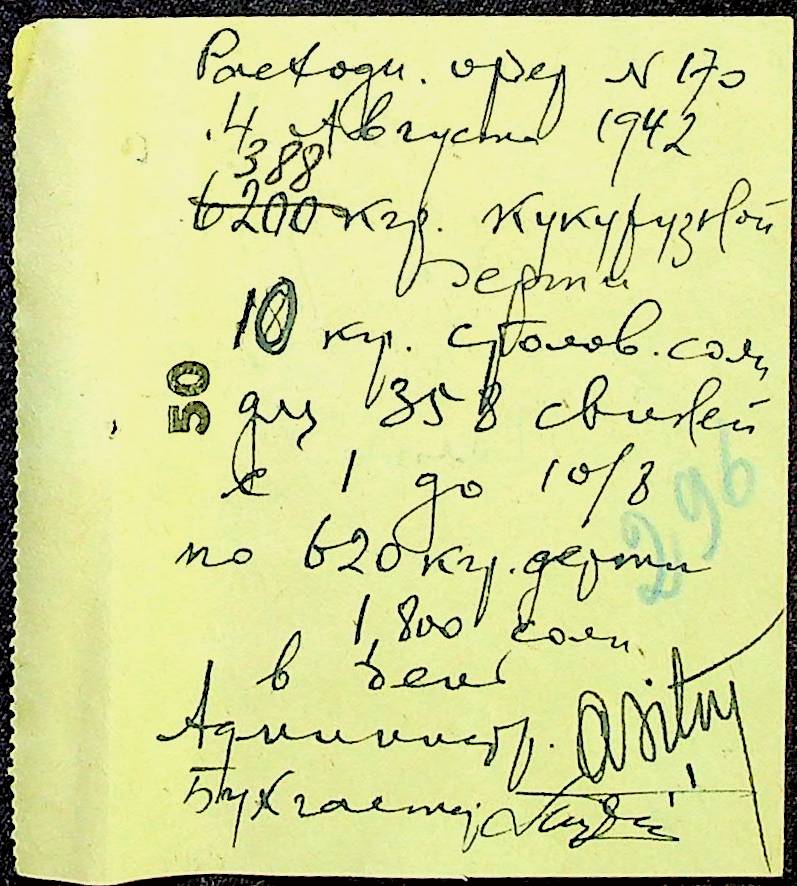 Расходн. ордер N 170
4 Августа 1942
388
6200 кгр. кукурузной
дерти
10 кгр. столов. соли
50
для 358 свиней
с 1 до 10/8
296
по 620 кгр. дерти
1,800 соли
в день
Администр.
Бухгалтер